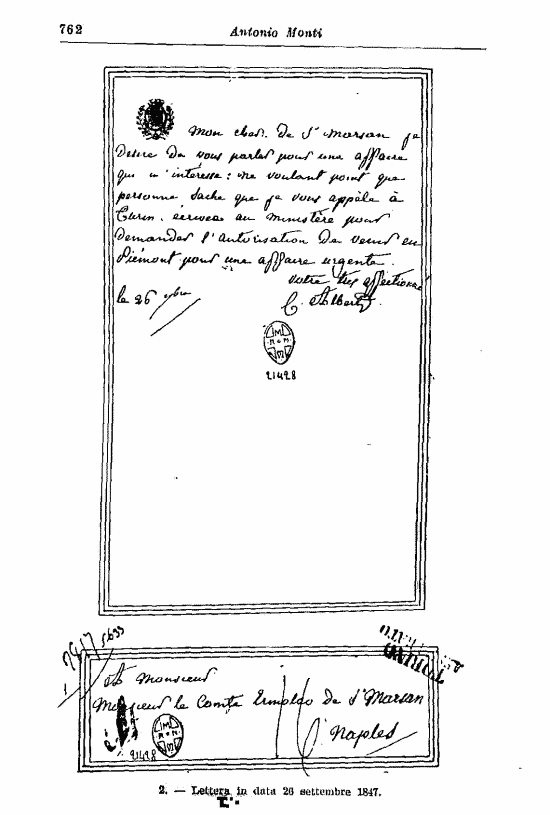 762
Antonio Monti
Mon cher De St Marsan je
Desire De vous parler pour une affaire
qui m'interesse: ne voulant point que
personne sache que je vous appèle à
Turin, ecrivez au Ministère pour
Demander l'autorisation De venir en
Piémont pour une affaire urgente.
votre très affectionné
le 26 7bre C. Albert
M
R M
21428
1847 5633
A Monsieur
Monsieur le Comte Ermolao de St Marsan
Naples
M
R M
21428
2. — Lettera in data 26 settembre 1847.